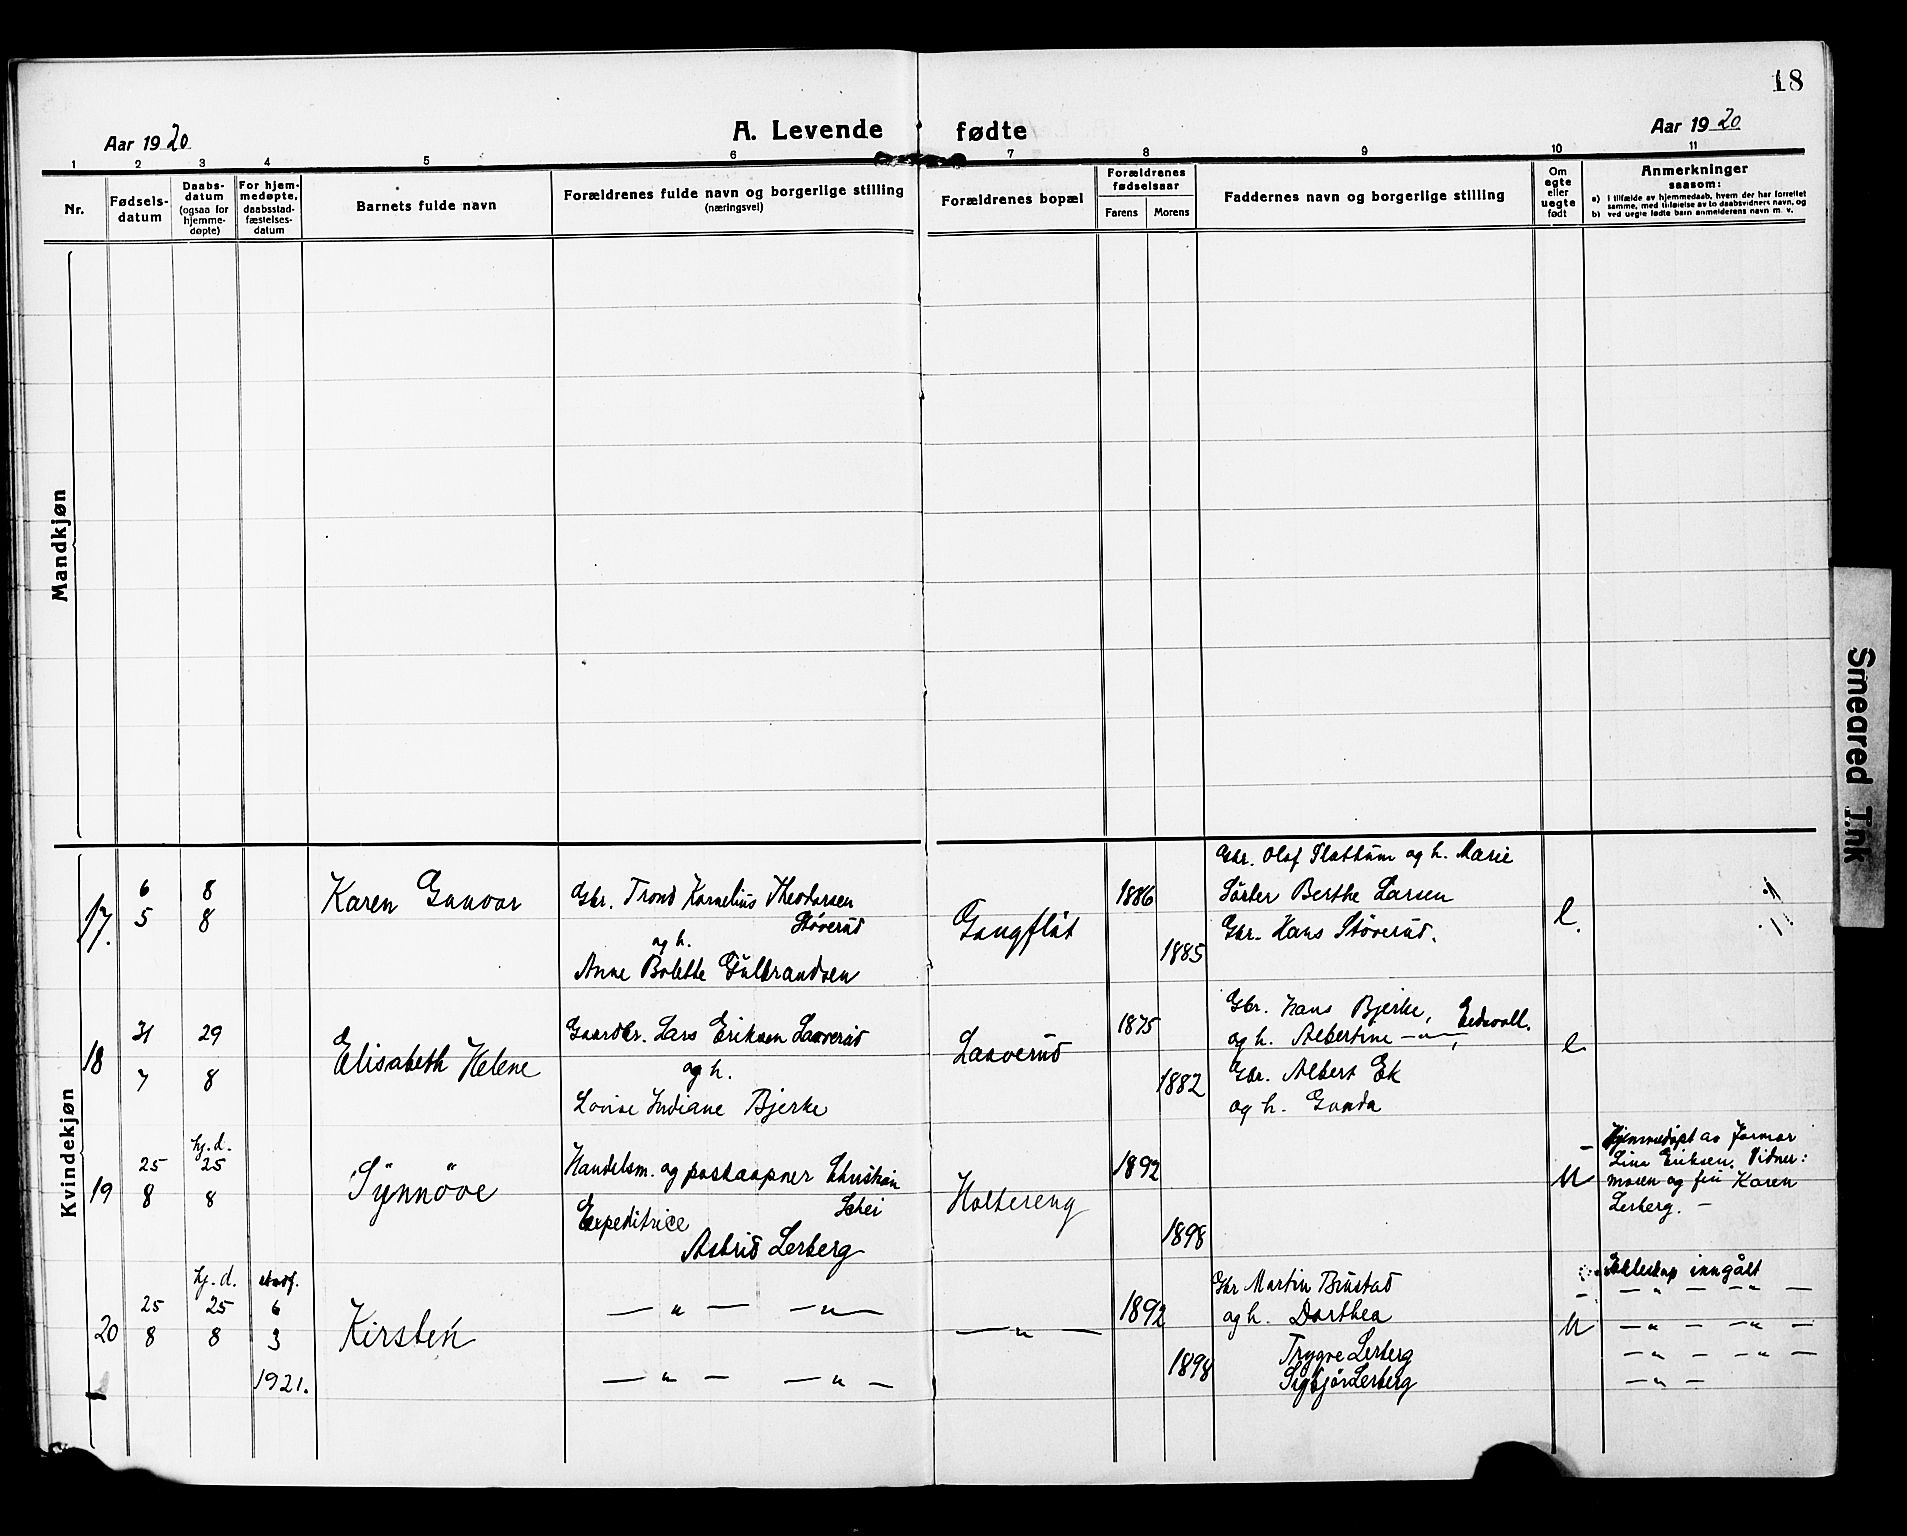 18
Aar 1920
A. Levende fødte
Aar 1920
1 2 3 4 5 6 7 8 9 10 11
Nr.
Fødsels-
datum
Daabs-
datum
(ogsaa for
hjemme-
døpte)
For hjem-
medøpte,
daabsstad-
fæstelses-
datum
Barnets fulde navn
Forældrenes fulde navn og borgerlige stilling
(næringsvei)
Forældrenes bopæl
Forældrenes
fødselsaar
Farens Morens
Faddernes navn og borgerlige stilling
Om
egte
eller
uegte
født
Anmerkninger
saasom:
a) i tilfælde av hjemmedaab, hvem der har forrettet
samme, med tilføielse av to daabsvidners navn, og
b) ved uegte fødte barn anmelderens navn m. v.
Mandkjøn
Kvindekjøn
17.
6
5
8
8
Karen Gunvor
Gbr. Trond Kornelius Theodorsen
Støverud
og h.
Anne Bolette Gulbrandsen
Gangflöt
1886
1885
Gbr. Olaf Slathum og h. Marie
Söster Berthe Larsen
Gbr. Hans Støverud.
e.
18
31
7
29
8
Elisabeth Helene
Gaardbr. Lars Eriksen Laaverud
og h.
Lovise Indiane Bjerke
Laaverud
1875
1882
Gbr. Hans Bjerke, Eidsvoll.
og h. Albertine —"—,
Gbr. Albert Ek
og h. Gunda
e
19
25
8
hj. d.
25
8
Synnöve
Handelsm. og postaapner Christian
Schei
Expeditrice
Astrid Lerberg
Holtereng
1892
1898
U
— Hjemmedøpt av Jormor
Line Eriksen. Vidner:
moren og frü Karen
Lerberg. —
20
25
8
hj. d.
25
8
stadf.
6
3
1921.
Kirsten
— " — — " —
— " — — " —
— " —
1892
1898
Gbr Martin Brustad
og h. Dorthea
Trygve Lerberg
Sigbjör Lerberg
U
Ekteskap inngått
— " — — " —
— " — — " —
— " — — " —
— " —
Smeared Ink